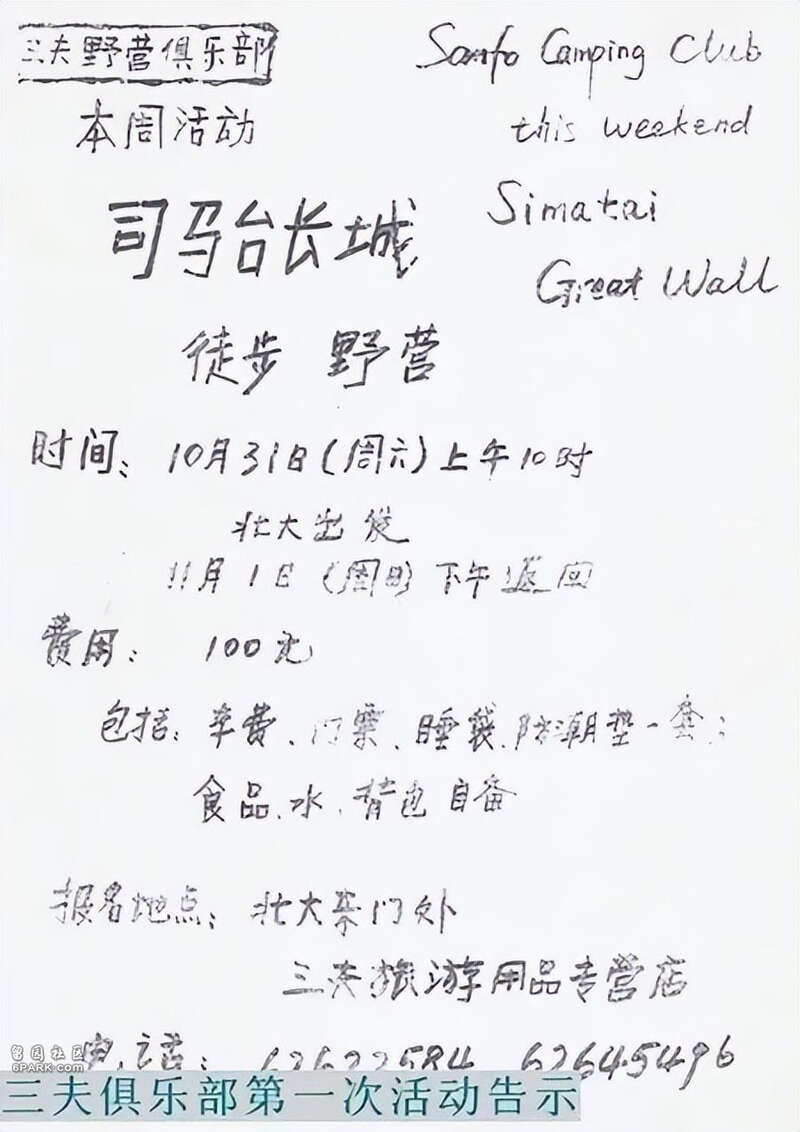 三夫野营俱乐部
Sanfo Camping Club
本周活动
this weekend
司马台长城
Simatai
Great Wall
徒步 野营
时间: 10月31日(周六)上午10时
北大出发
11月1日(周日)下午返回
费用: 100元
包括: 车费、门票、睡袋、防潮垫一套;
食品、水、背包自备
报名地点: 北大东门外
三夫旅游用品专营店
电话: 62622584 62645496
留园社区
6PARK.COM
三夫俱乐部第一次活动告示